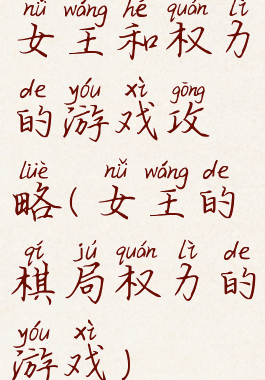 nǚ wáng hé quán lì
女王和权力
de yóu xì gōng
的游戏攻
lüè nǚ wáng de
略(女王的
qí jú quán lì de
棋局权力的
yóu xì
游戏)